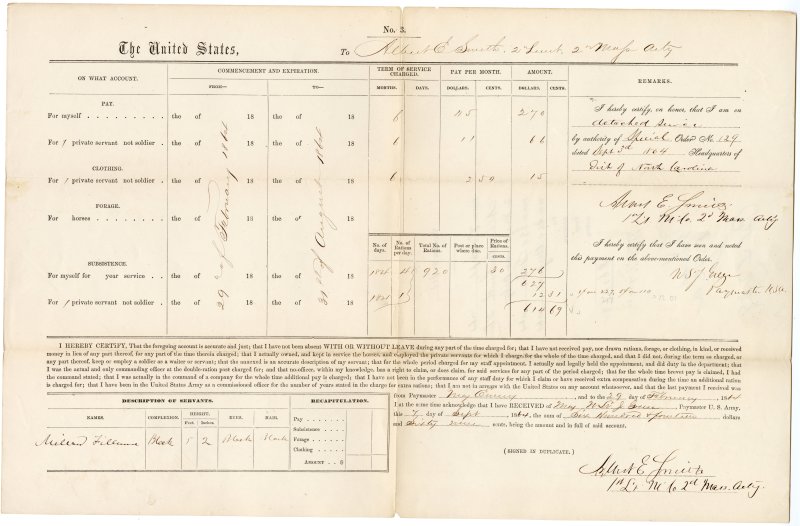 No. 3.
The United States,
To Albert E. Smith 2d Lieut. 2d Mass Arty
ON WHAT ACCOUNT.
COMMENCEMENT AND EXPIRATION.
FROM— TO—
TERM OF SERVICE CHARGED.
MONTHS. DAYS.
PAY PER MONTH.
DOLLARS. CENTS.
AMOUNT.
DOLLARS. CENTS.
REMARKS.
PAY.
For myself . . . . . . . . . the of 18 the of 18 6 45 270
For 1 private servant not soldier . the of 18 the of 18 6 11 66
CLOTHING.
For 1 private servant not soldier . the of 18 the of 18 6 2 50 15
FORAGE.
For horses . . . . . . . . the of 18 the of 18
29 of February 1864
31 of August 1864
No. of days. No. of Rations per day. Total No. of Rations. Post or place where due. Price of Rations. CENTS.
SUBSISTENCE.
For myself for year service . . the of 18 the of 18 184 4 920 30 276
627
For 1 private servant not soldier . the of 18 the of 18 184 1 12 31
614 69
I hereby certify, on honor, that I am on
detached service
by authority of Special Order No. 129
dated Sept 3d 1864 Headquarters of
Dist of North Carolina
Albert E. Smith
1st Lt M Co. 2d Mass. Arty
I hereby certify that I have seen and noted
this payment on the abovementioned Order.
Paymaster U.S.A.
I HEREBY CERTIFY, That the foregoing account is accurate and just; that I have not been absent WITH OR WITHOUT LEAVE during any part of the time charged for; that I have not received pay, nor drawn rations, forage, or clothing, in kind, or received
money in lieu of any part thereof, for any part of the time therein charged; that I actually owned, and kept in service the horses, and employed the private servants for which I charge for the whole of the time charged, and that I did not, during the term so charged, or
any part thereof, keep or employ a soldier as a waiter or servant; that the annexed is an accurate description of my servant; that for the whole period charged for my staff appointment, I actually and legally held the appointment, and did duty in the department; that
I was the actual and only commanding officer at the double-ration post charged for; and that no officer, within my knowledge, has a right to claim, or does claim, for said services for any part of the period charged; that for the whole time brevet pay is claimed, I had
the command stated; that I was actually in the command of a company for the whole time additional pay is charged; that I have not been in the performance of any staff duty for which I claim or have received extra compensation during the time an additional ration
is charged for; that I have been in the United States Army as a commissioned officer for the number of years stated in the charge for extra rations; that I am not in arrears with the United States on any account whatsoever, and that the last payment I received was
from Paymaster and to the 29 day of February, 1864
I at the same time acknowledge that I have RECEIVED of Paymaster U. S. Army,
this 7 day of Sept 1864, the sum of Six Hundred & fourteen dollars
and Sixty nine cents, being the amount and in full of said account.
(SIGNED IN DUPLICATE.)
Albert E. Smith
1st Lt M Co 2d Mass. Arty.
DESCRIPTION OF SERVANTS.
NAMES. COMPLEXION. HEIGHT. Feet. Inches. EYES. HAIR.
Millard Fillmore Black 5 2 Black Black
RECAPITULATION.
Pay . . . . . .
Subsistence . . .
Forage . . . . .
Clothing . . . .
AMOUNT . . $